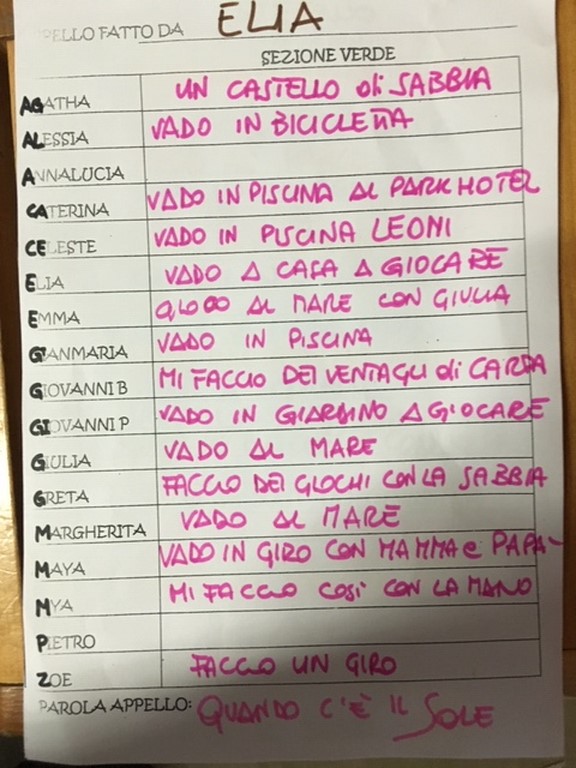 PELLO FATTO DA ELIA
SEZIONE VERDE
AGATHA UN CASTELLO di SABBIA
ALESSIA VADO IN BICICLETTA
ANNALUCIA
CATERINA VADO IN PISCINA AL PARK HOTEL
CELESTE VADO IN PISCINA LEONI
ELIA VADO A CASA A GIOCARE
EMMA GIOCO AL MARE CON GIULIA
GIANMARIA VADO IN PISCINA
GIOVANNI B MI FACCIO DEI VENTAGLI di CARTA
GIOVANNI P VADO IN GIARDINO A GIOCARE
GIULIA VADO AL MARE
GRETA FACCIO DEI GIOCHI CON LA SABBIA
MARGHERITA VADO AL MARE
MAYA VADO IN GIRO CON MAMMA e PAPA'
MYA MI FACCIO COSI' CON LA MANO
PIETRO
ZOE FACCIO UN GIRO
PAROLA APPELLO: QUANDO C'È IL SOLE